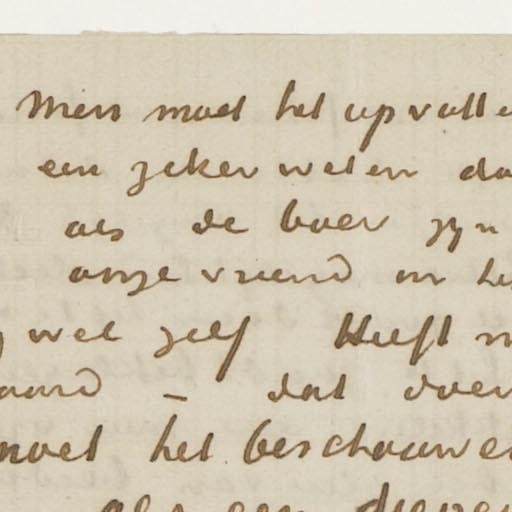 Men moet het opvatte
een zeker weten da
als de boer zyn
onze vriend in he
wel zelf Heeft n
aard – dat doen
moet het beschouwe
als een diepe